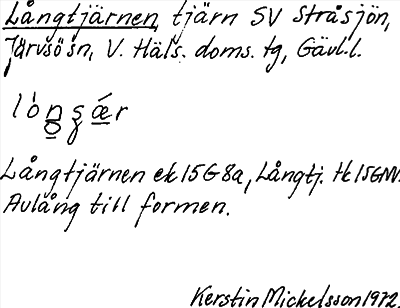 Långtjärnen, tjärn SV Stråsjön,
Järvsö sn, V. Häls. doms. tg, Gävl.l.
Långtjärnen ek 15G8a, Långtj. tk 15GNV.
Avlång till formen.
Kerstin Mickelsson 1972.